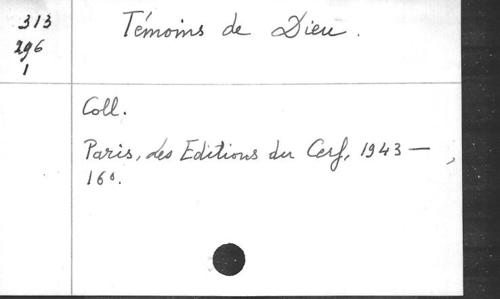 313
296
1
Témoins de Dieu.
Coll.
Paris, les Editions du Cerf, 1943 — ,
16°.